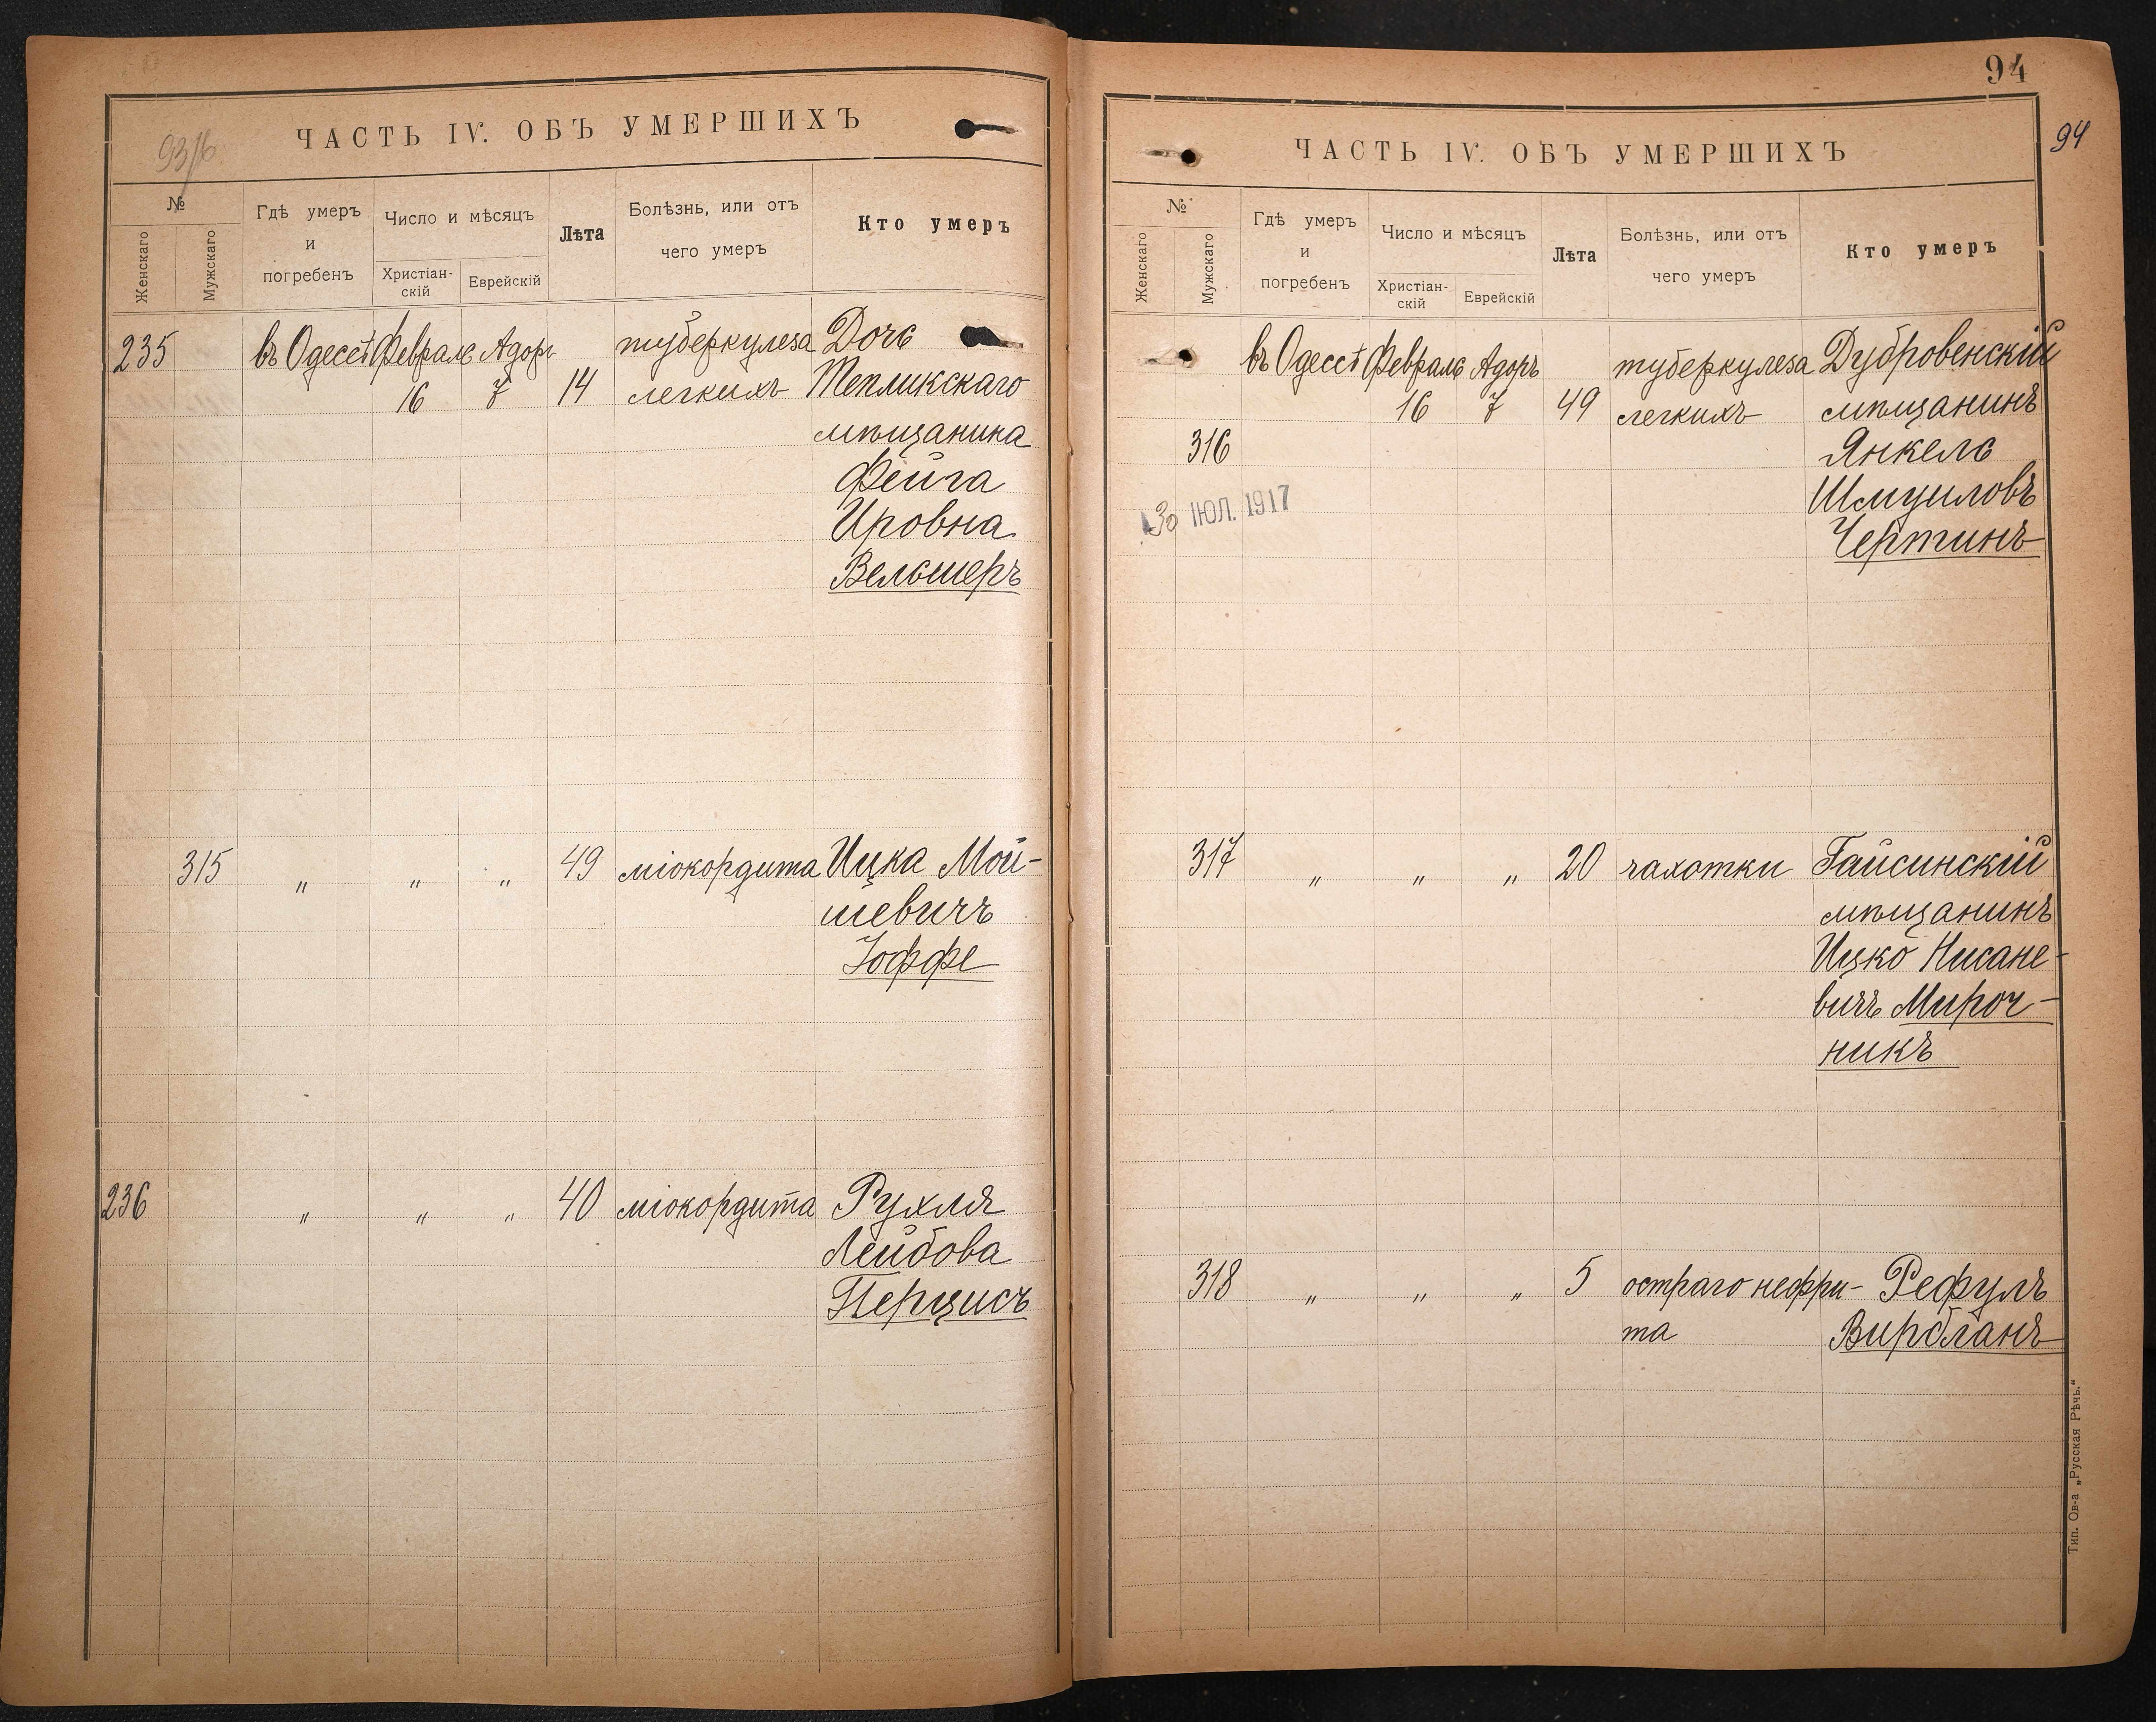 93/16
ЧАСТЬ IV. ОБЪ УМЕРШИХЪ
№
Женскаго
Мужскаго
Гдѣ умеръ
и
погребенъ
Число и мѣсяцъ
Христіан-
скій
Еврейскій
Лѣта
Болѣзнь, или отъ
чего умеръ
Кто умеръ
235 въ Одессѣ Февраль Адоръ туберкулеза Дочь
16 7 14 легкихъ Тепликскаго
мѣщанина
Фейга
Ировна
Вельшеръ
315 " " " 49 міокордита Ицка Мой-
шевичъ
Іоффе
236 " " " 40 міокордита Рухля
Лейбова
Перцисъ
94
94
ЧАСТЬ IV. ОБЪ УМЕРШИХЪ
№
Женскаго
Мужскаго
Гдѣ умеръ
и
погребенъ
Число и мѣсяцъ
Христіан-
скій
Еврейскій
Лѣта
Болѣзнь, или отъ
чего умеръ
Кто умеръ
въ Одессѣ Февраль Адоръ туберкулеза Дубровенскій
16 7 49 легкихъ мѣщанинъ
316 Янкель
Шмуиловъ
30 ІЮЛ. 1917
Чертинъ
317 " " " 20 чахотки Гайсинскій
мѣщанинъ
Ицко Нисане-
вичъ Мироч-
никъ
318 " " " 5 остраго нефри- Рефулъ
та Вирбланъ
Тип. Ов-а „Русская Рѣчь."